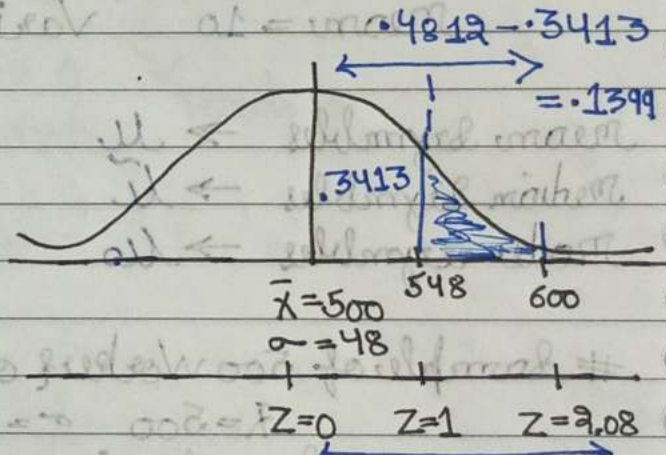 .4812 - .3413
= .1399
.3413
x̄ = 500 548 600
σ = 48
Z=0 Z=1 Z=2.08